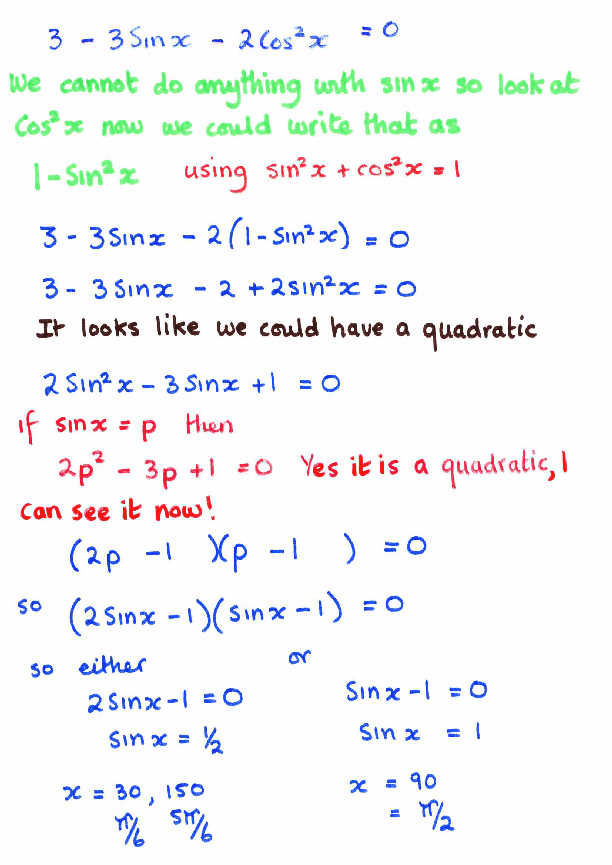 3 - 3 Sin x - 2 Cos²x = 0
We cannot do anything with sin x so look at
Cos²x now we could write that as
1 - Sin²x using sin²x + cos²x = 1
3 - 3 Sin x - 2(1 - Sin²x) = 0
3 - 3 Sin x - 2 + 2 sin²x = 0
It looks like we could have a quadratic
2 Sin²x - 3 Sin x + 1 = 0
if sin x = p then
2p² - 3p + 1 = 0 Yes it is a quadratic, I
can see it now!
(2p - 1 )(p - 1 ) = 0
so (2 Sin x - 1)(sin x - 1) = 0
so either or
2 Sin x - 1 = 0 Sin x - 1 = 0
Sin x = 1/2 Sin x = 1
x = 30, 150 x = 90
π/6 5π/6 = π/2